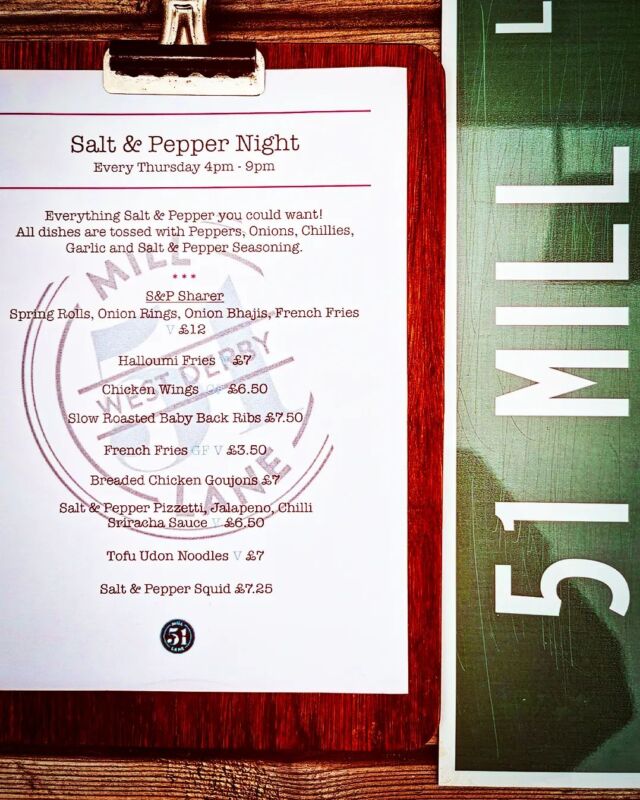 Salt & Pepper Night
Every Thursday 4pm - 9pm
Everything Salt & Pepper you could want!
All dishes are tossed with Peppers, Onions, Chillies,
Garlic and Salt & Pepper Seasoning.
***
S&P Sharer
Spring Rolls, Onion Rings, Onion Bhajis, French Fries
V £12
Halloumi Fries £7
Chicken Wings £6.50
Slow Roasted Baby Back Ribs £7.50
French Fries GF V £3.50
Breaded Chicken Goujons £7
Salt & Pepper Pizzetti, Jalapeno, Chilli
Sriracha Sauce V £6.50
Tofu Udon Noodles V £7
Salt & Pepper Squid £7.25
MILL
51
WEST DERBY
LANE
MILL
51
LANE
51 MILL L